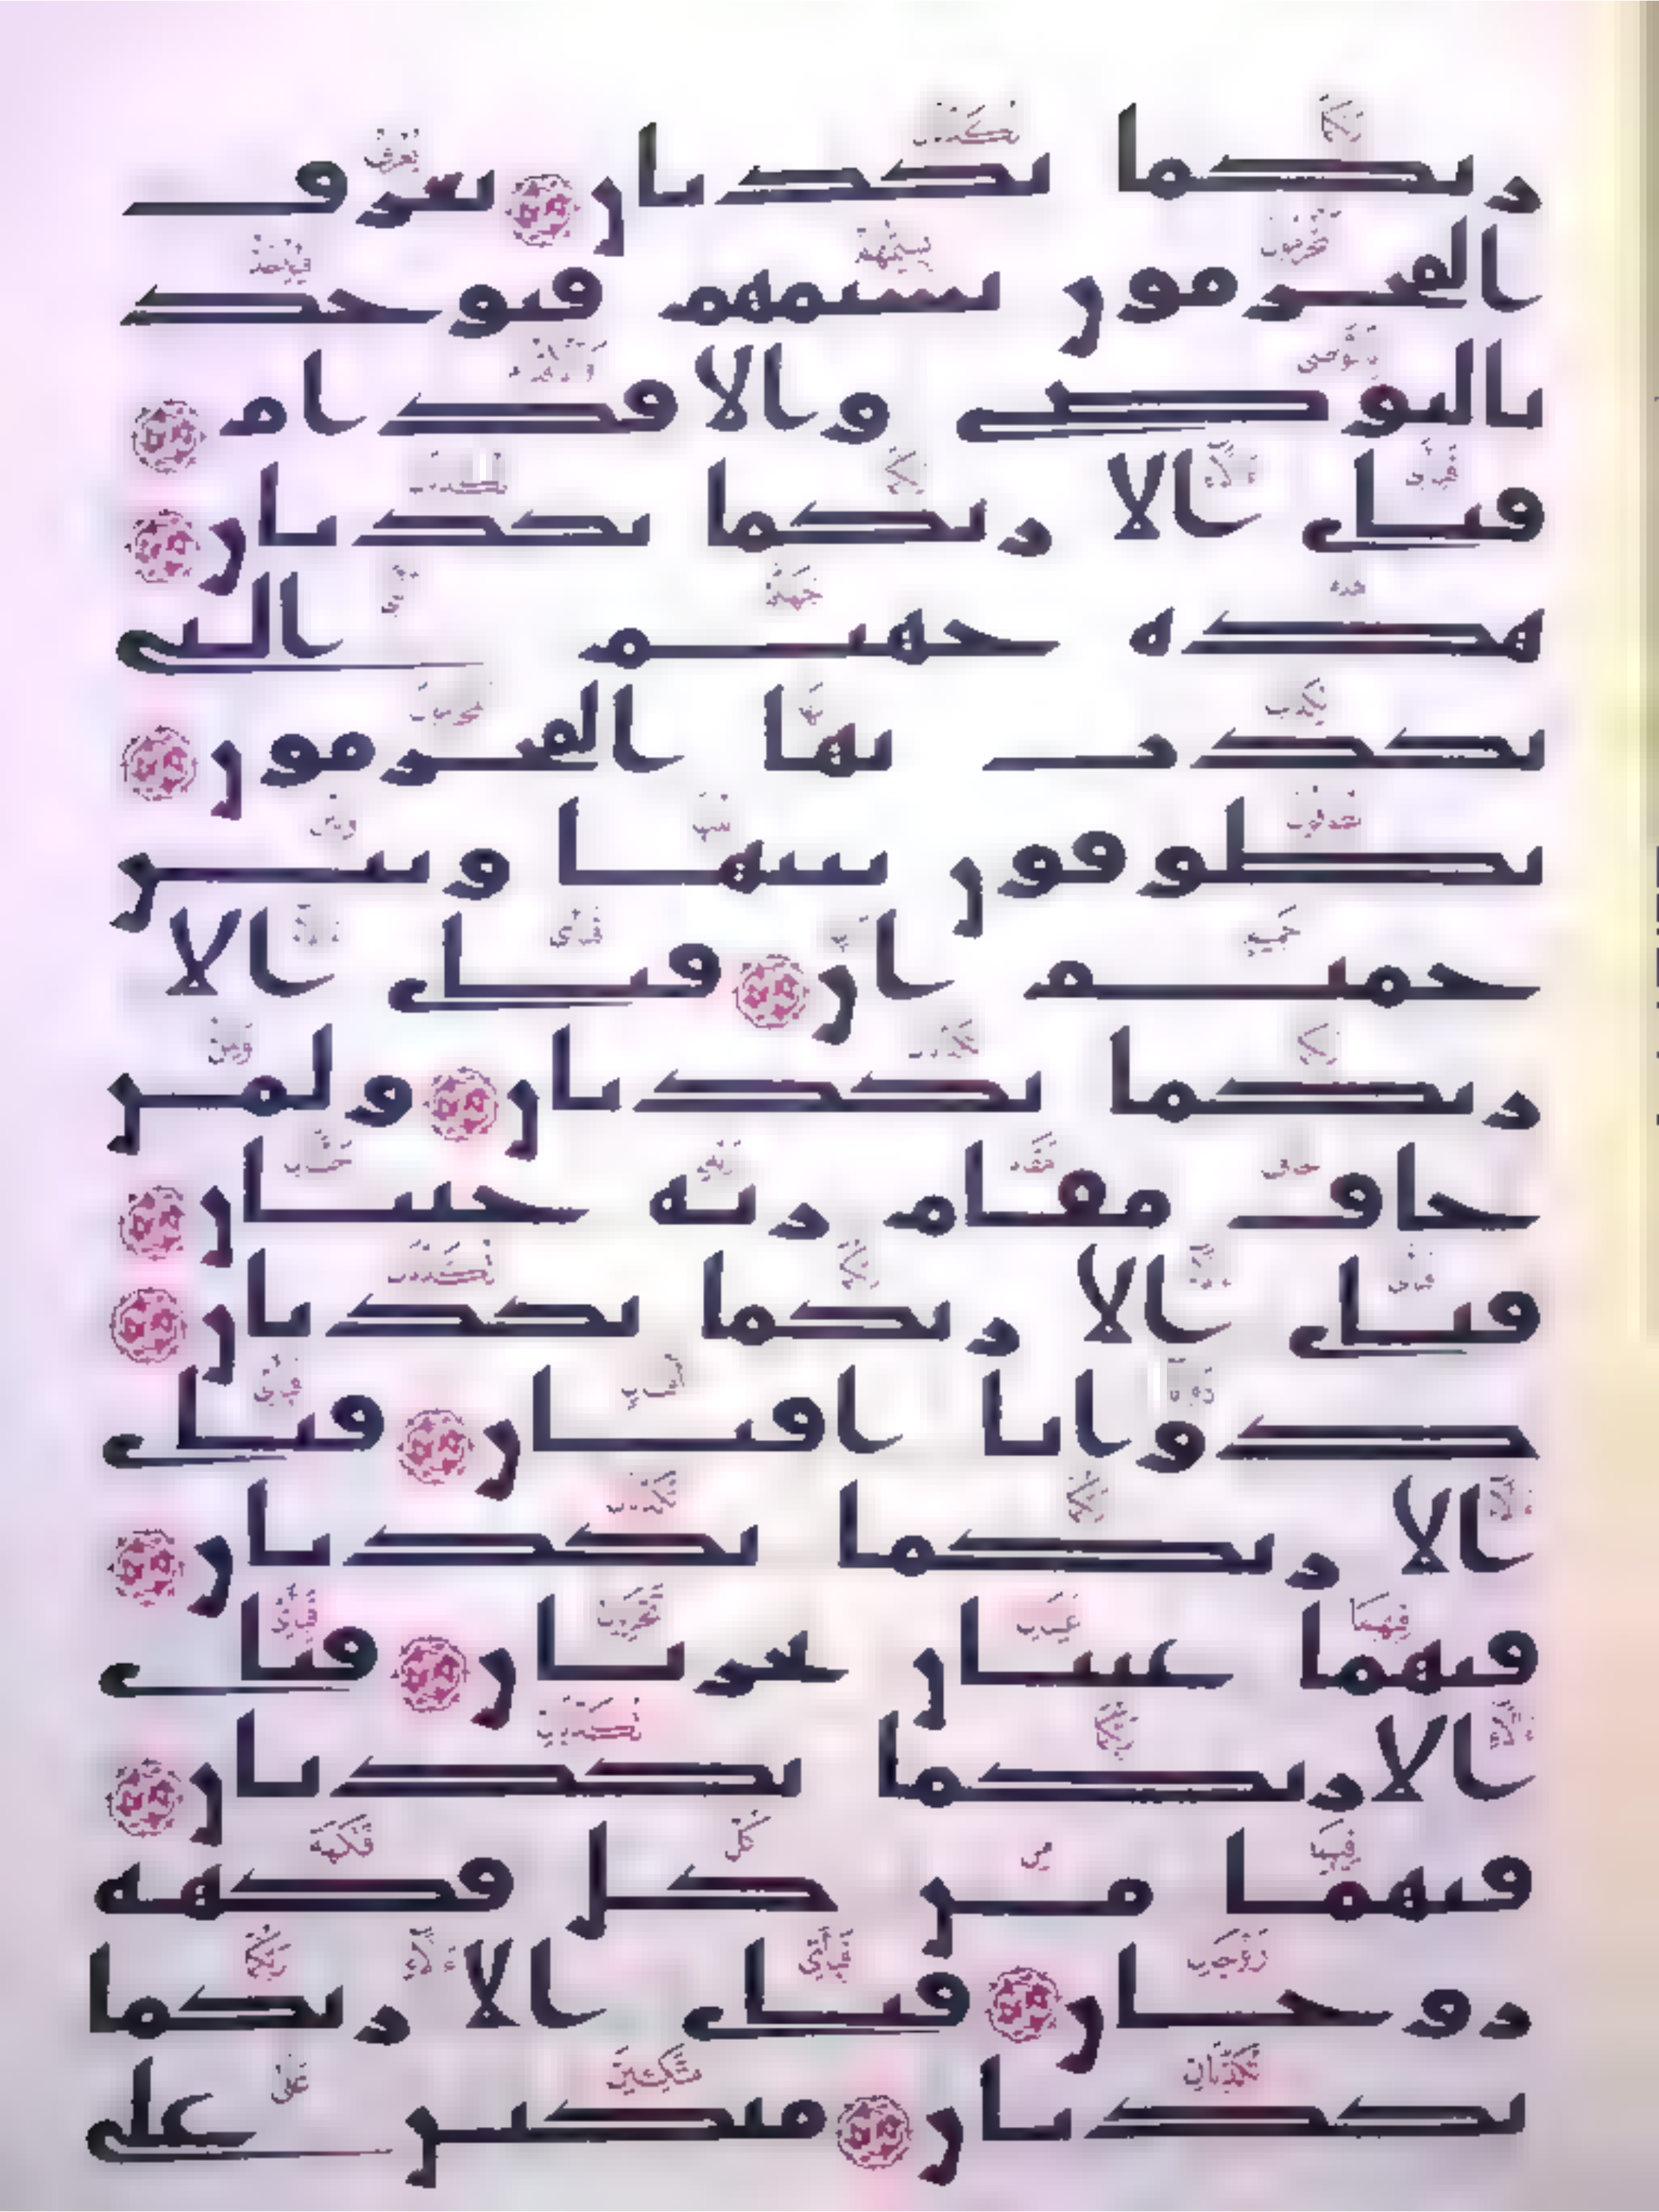 ربكما تكذبان يعرف
المجرمون بسيمهم فيوخذ
بالنوصى والاقدام
فباى الا ربكما تكذبان
هذه جهنم التى
يكذب بها المجرمون
يطوفون بينها وبين
حميم ان فباى الا
ربكما تكذبان ولمن
خاف مقام ربه جنتان
فباى الا ربكما تكذبان
ذواتا افنان فباى
الا ربكما تكذبان
فيهما عينان تجريان فباى
الا ربكما تكذبان
فيهما من كل فكهة
زوجان فباى الا ربكما
تكذبان متكين على